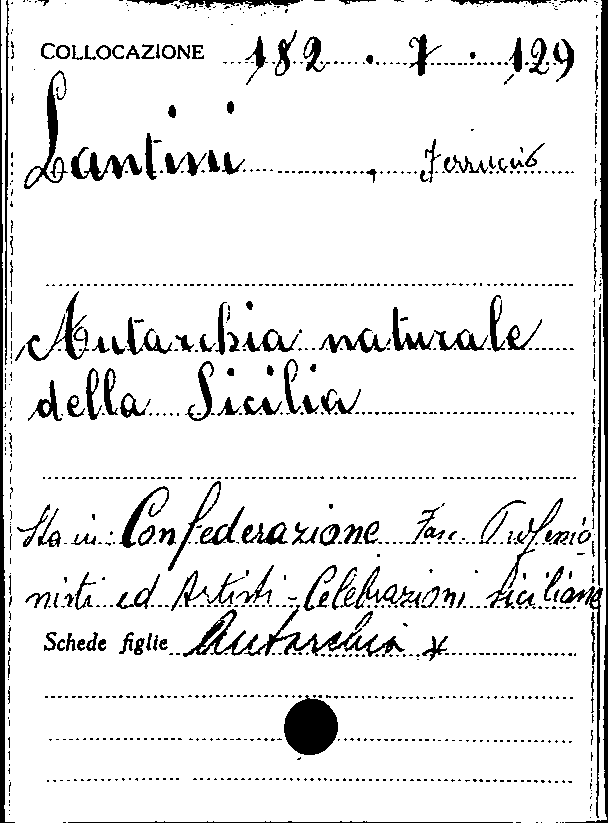 COLLOCAZIONE 182 . 7 . 129
Lantini , Ferruccio
Autarchia naturale
della Sicilia
Sta in: Confederazione Fasc. Professio
nisti ed Artisti - Celebrazioni siciliane
Schede figlie Autarchia *